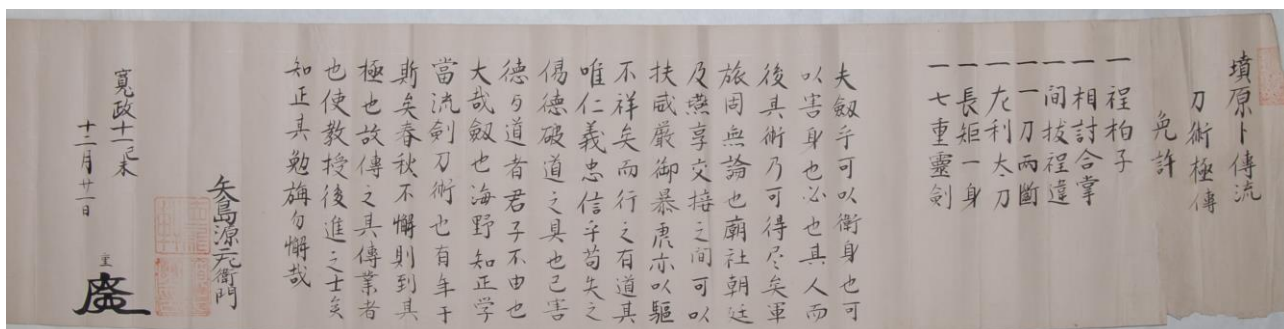 墳原卜傳流
刀術極傳
免許
一 程拍子
一 相討合掌
一 間拔程違
一 一刀兩斷
一 左利太刀
一 長矩一身
一 七重靈劍
夫劔乎可以衛身也可
以害身也必也其人而
後其術乃可得尽矣軍
旅固無論也廟社朝廷
及燕享交接之間可以
扶威嚴御暴虎亦以驅
不祥矣而行之有道其
唯仁義忠信乎苟失之
傷德破道之具也已害
德与道者君子不由也
大哉劔也海野知正学
當流剣刀術也有年于
斯矣春秋不懈則到其
極也故傳之具傳業者
也使教授後進之士矣
知正其勉旃勿懈哉
矢島源左衛門
寛政十一己未
十二月廿一日